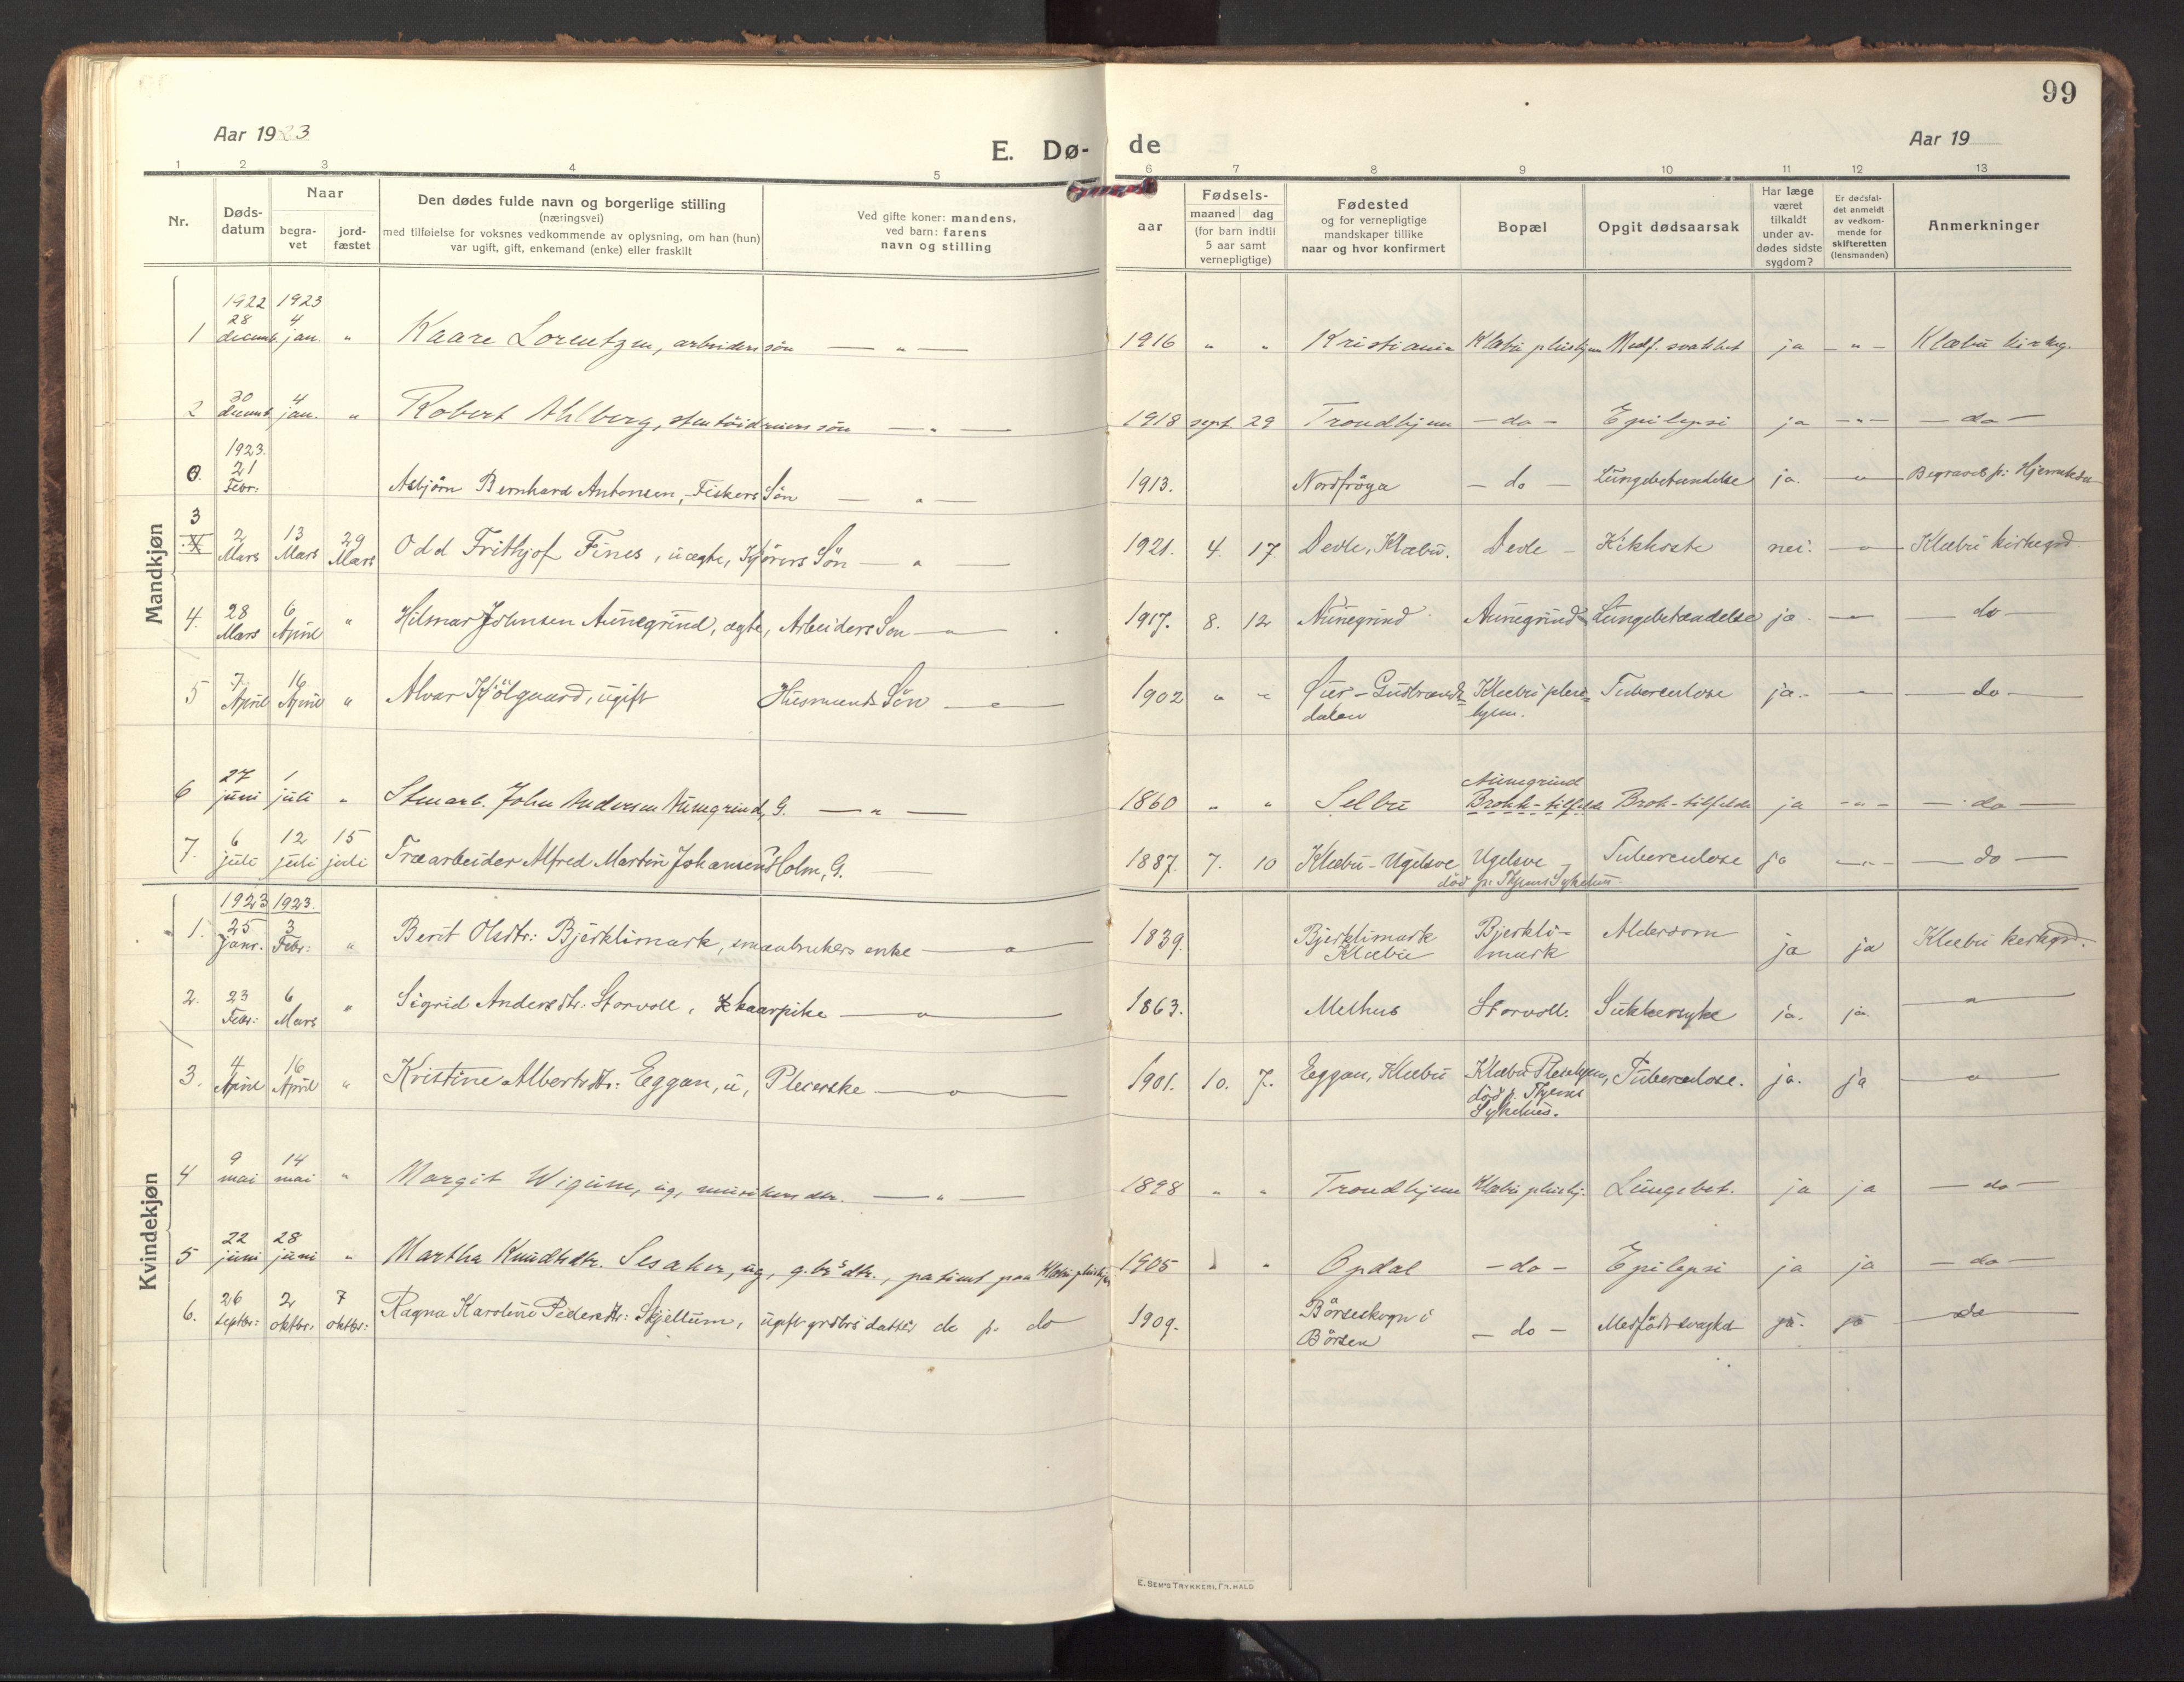 99
Aar 1923
E. Dø-de
Aar 19
1 2 3 4 5 6 7 8 9 10 11 12 13
Nr.
Døds-
datum
Naar
begra-
vet
jord-
fæstet
Den dødes fulde navn og borgerlige stilling
(næringsvei)
med tilføielse for voksnes vedkommende av oplysning, om han (hun)
var ugift, gift, enkemand (enke) eller fraskilt
Ved gifte koner: mandens.
ved barn: farens
navn og stilling
aar
Fødsels-
maaned dag
(for barn indtil
5 aar samt
vernepligtige)
Fødested
og for vernepligtige
mandskaper tillike
naar og hvor konfirmert
Bopæl
Opgit dødsaarsak
Har læge
været
tilkaldt
under av-
dødes sidste
sygdom?
Er dødsfal-
det anmeldt
av vedkom-
mende for
skifteretten
(lensmanden)
Anmerkninger
Mandkjøn
1922 1923
28 4
1 decemb. jan. " Kaare Lorentzen, arbeiders søn — " — 1916 " " Kristiania Klæbu pleiehjem Medf. svakhet ja — " — Klæbu kirkeg.
30 4
2 decemb. jan. " Robert Ahlberg, søn — " — 1918 sept. 29 Trondhjem — do — Epilepsi ja — " — — do —
1923.
0. 21 Febr: Asbjörn Bernhard Antonsen, Fiskers Sön — " — 1913. Nordfröya — do — Lungebetændelse ja. — " — Begravet p:
3
2 13 29
Mars Mars Mars Odd Frithjof Fines, uægte, Kjörers Sön — " — 1921. 4. 17. Devle, Klæbu. Devle — Kikhoste nei. — " — Klæbu kirkegrd.
28 6
4. Mars April " Hilmar Johnsen Aunegrind, ægte, Arbeiders Søn — " — 1917. 8. 12 Aunegrind Aunegrind Lungebetændelse ja — " — — do —
7. 16
5 April April " Alvar Kjölgaard, ugift Husmands Sön — " — 1902 " " Öier-Gudbrands- Klæbu pleie- Tuberculose ja. — " — — do —
dalen hjem.
27 1 Aunegrind
6 juni juli " Stenarb. John Andersen Aunegrind, G. — " — 1860 " " Selbu Brokk-tilfelde Brok-tilfelde ja — " — — do —
6 12 15
7. juli juli juli Træarbeider Alfred Martin Johansen Holm, G. — 1887. 7. 10 Klæbu-Ugelsve Ugelsve Tuberculose ja — " — — do —
död p: Thjems Sykehus.
Kvindekjøn
1923 1923.
25 3
1. Janr. Febr: " Berit Olsdtr: Bjerklimark, smaabrukers enke — " — 1839. Bjerklimark Bjerkli- Aldersdom ja ja Klæbu kirkegrd.
Klæbu mark
23 6
2. Febr: Mars " Sigrid Andersdtr: Storvoll, kaarpike — " — 1863. Melhus Storvoll. Sukkersyke ja. ja. — " —
4 16
3. April April " Kristine Albertsdtr: Eggan, u, Pleierske — " — 1901. 10. 7. Eggan, Klæbu Klæbu Pleiehjem, Tuberculose. ja. ja — " —
död p. Thjems
Sykehus.
9 14
4 mai mai " Margit Wigum, ug, musikers dtr. — " — 1898 " " Trondhjem Klæbu pleiehj. Lungebet. ja ja — do —
22 28
5 juni juni " Martha Knudtsdtr. Sesaker, ug, g.brs dtr., patient paa Klæbu pleiehjem 1905 " " Opdal — do — Epilepsi ja ja — do —
26 2 7
6. septbr: oktbr. oktbr: Ragna Karoline Pedersdtr: Skjellum, ugift grdbrs datter do p. do 1909. Börseskogn i — do — Medfödt svaghet ja. ja do
Börsen
E. SEM'S TRYKKERI, FR. HALD